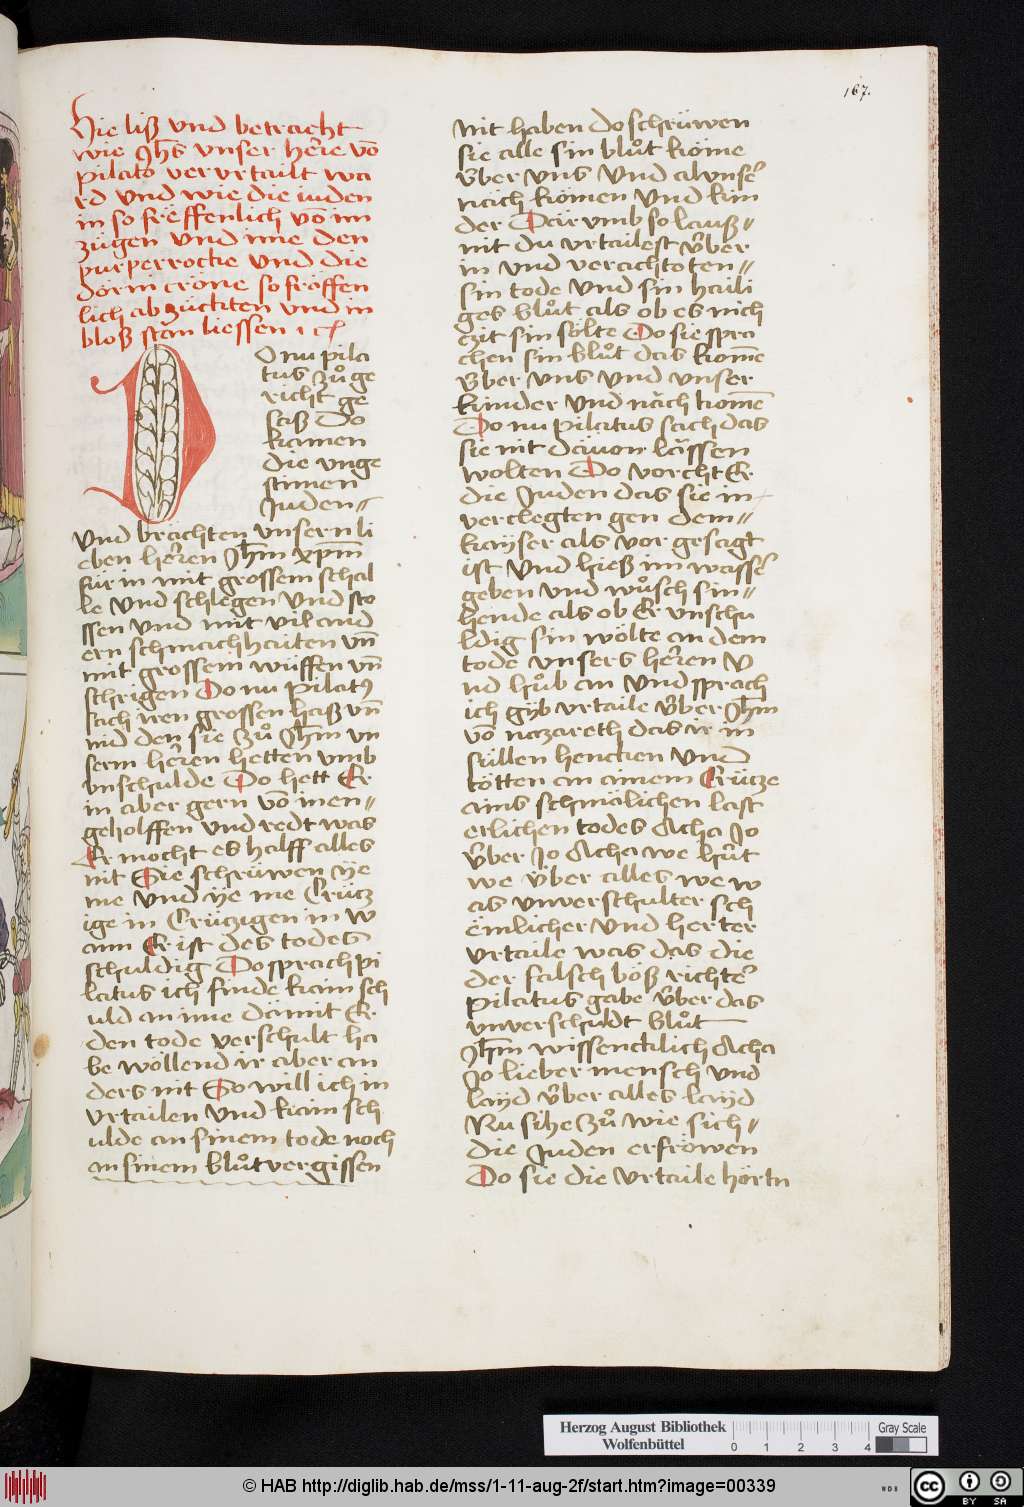 167.
Hie liß vnd betracht
wie Jhs vnser here vō
pilato vervrtailt wa
rd vnd wie die iuden
in so fräffenlich vō im
zügen vnd ime den
purperrocke vnd die
dörin cröne so fräffen
lich ab zuckten vnd in
bloß stān liessen
DO nu pila
tus zů ge
richt ge
saß Do
kamen
die vnge
stimen
Juden
vnd brächten vnsern li
eben heren Jhm xpm
für in mit grossem schal
le vnd schlegen vnd sto
ssen vnd mit vil and
ern schmachhaiten vn̄
mit grossem wüffen vn̄
schrigen Do nu pilatꝯ
sach iren grossen haß vn̄
nid den sie zů Jhm vn
serm heren hetten vmb
vnschulde Do hett Er
in aber gern vō inen
geholffen vnd redt was
Er mocht es halff alles
nit Sie schrüwen ye
me vnd ye me Crütz
ige in Crützigen in w
ann Er ist des todes
schuldig Do sprach pi
latus ich finde kain sch
uld an ime dämit Er
den tode verschult ha
be wöllend ir aber an
ders nit So will ich in
vrtailen vnd kain sch
ulde an sinem tode noch
an sinem blůt vergissen
nit haben do schrüwen
sie alle sin blůt kome
v̈ber vns vnd al vnser
näch komen vnd kin
der Där vmb so lauß
nit du vrtailest v̈ber
in vnd verachto ten
sin tode vnd sin haili
ges blůt als ob es nich
czit sin sölte Do sie spra
chen sin blůt das kome
v̈ber vns vnd vnser
kinder vnd näch komē
Do nu pilatus sach das
sie nit dävon lässen
wolten Do vorcht Er
die Juden das sie in
verclegten gen dem
kayser als vor gesagt
ist vnd hieß im wasser
geben vnd wůsch sin
hende als ob Er vnschu
ldig sin wölte an dem
tode vnsers heren v
nd hůb an vnd sprach
ich gyb vrtaile v̈ber Jhm
vō nazareth das ir in
süllen hencken vnd
tötten an ainem Crütze
ains schmälichen last
erlichen todes Acha Jo
v̈ber Jo Acha we hüt
we v̈ber alles we w
as vnverschulter sch
emlicher vnd herter
vrtaile was das die
der falsch böß richter
pilatus gabe v̈ber das
vnverschuldt blůt
Jhm wissencklich Acha
Jo lieber mensch vnd
layd v̈ber alles layd
Nu sihe zů wie sich
die Juden erfröwen
Do sie die vrtaile hörtn
Herzog August Bibliothek
Wolfenbüttel
0 1 2 3 4
Gray Scale
© HAB http://diglib.hab.de/mss/1-11-aug-2f/start.htm?image=00339
WDB
cc BY SA